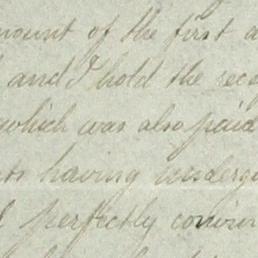 mount of the first a
and I hold the rece
which was also paid
ts having underg
perfectly convin